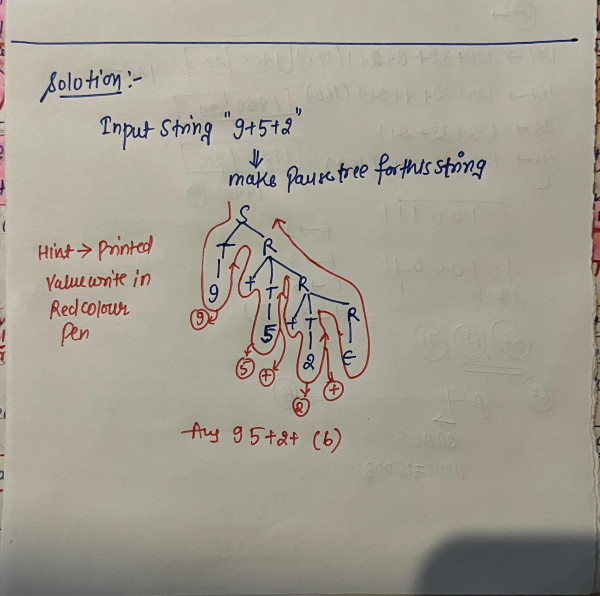 Solution:-
Input String "9+5+2"
⇓
make Parse tree for this string
Hint → Printed
value write in
Red colour
Pen
S
T R
9 + T R
9 5 + T R
5 + 2 ε
2 +
Ans 9 5+2+ (b)